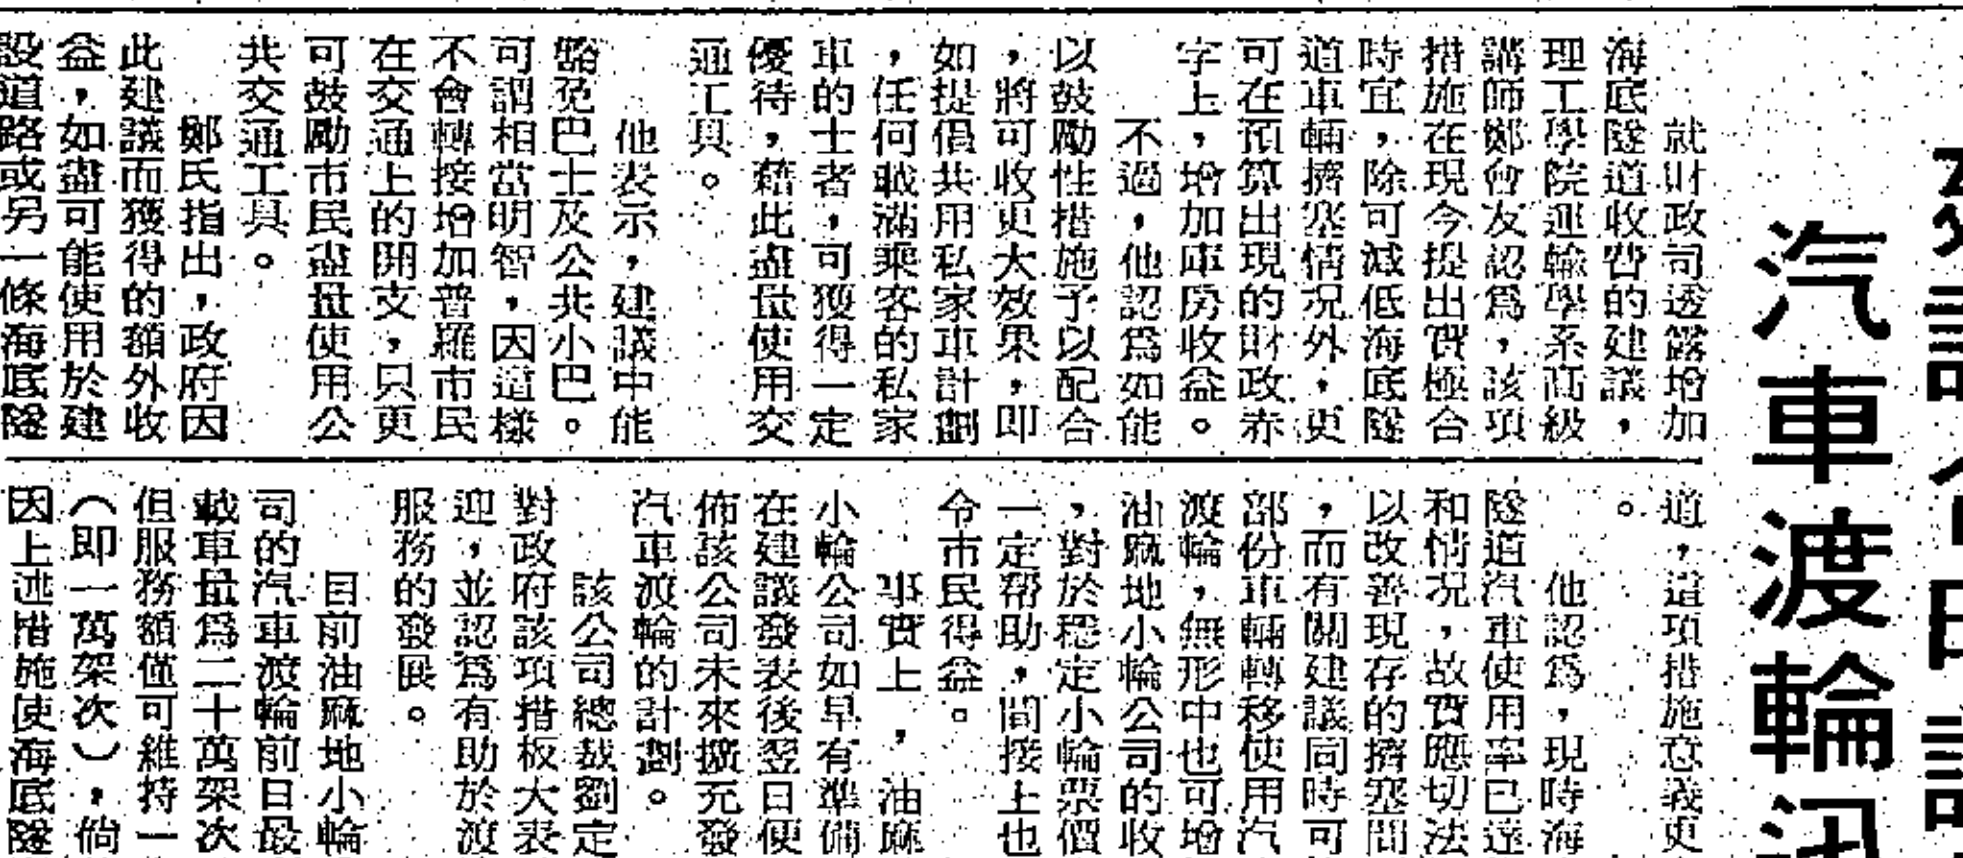 汽車渡輪
就財政司透露增加
海底隧道收費的建議，
理工學院運輸學系高級
講師鄭會友認爲，該項
措施在現今提出實極合
時宜，除可減低海底隧
道車輛擠塞情况外，更
可在預算出現的財政赤
字上，增加庫房收益。
不過，他認爲如能
以鼓勵性措施予以配合
，將可收更大效果，即
如提倡共用私家車計劃
，任何載滿乘客的私家
車的士者，可獲得一定
優待，藉此盡量使用交
通工具。
他表示，建議中能
豁免巴士及公共小巴。
可謂相當明智，因這樣
不會轉接增加普羅市民
在交通上的開支，只更
可鼓勵市民盡量使用公
共交通工具。
鄭氏指出，政府因
此建議而獲得的額外收
益，如盡可能使用於建
設道路或另一條海底隧
道，這項措施意義更
。
他認爲，現時海
隧道汽車使用率已達
和情况，故實應切法
以改善現存的擠塞問
，而有關建議同時可
部份車輛轉移使用汽
渡輪，無形中也可增
油麻地小輪公司的收
，對於穩定小輪票價
一定帮助，間接上也
令市民得益。
事實上，油麻
小輪公司如早有準備
在建議發表後翌日便
佈該公司未來擴充發
汽車渡輪的計劃。
該公司總裁劉定
對政府該項措板大表
迎，並認爲有助於渡
服務的發展。
目前油麻地小輪
司的汽車渡輪前日最
載車量爲二十萬架次
但服務額僅可維持一
（即一萬架次），倘
因上述措施使海底隧